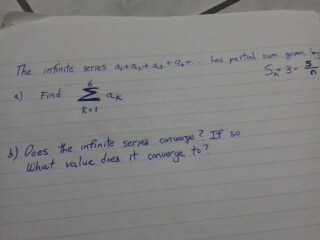 The infinite series a₁+a₂+a₃+a₄+... has partial sum given by
Sₙ = 3 - 5/n
a) Find 6 Σ k=1 aₖ
b) Does the infinite series converge? If so
What value does it converge to?